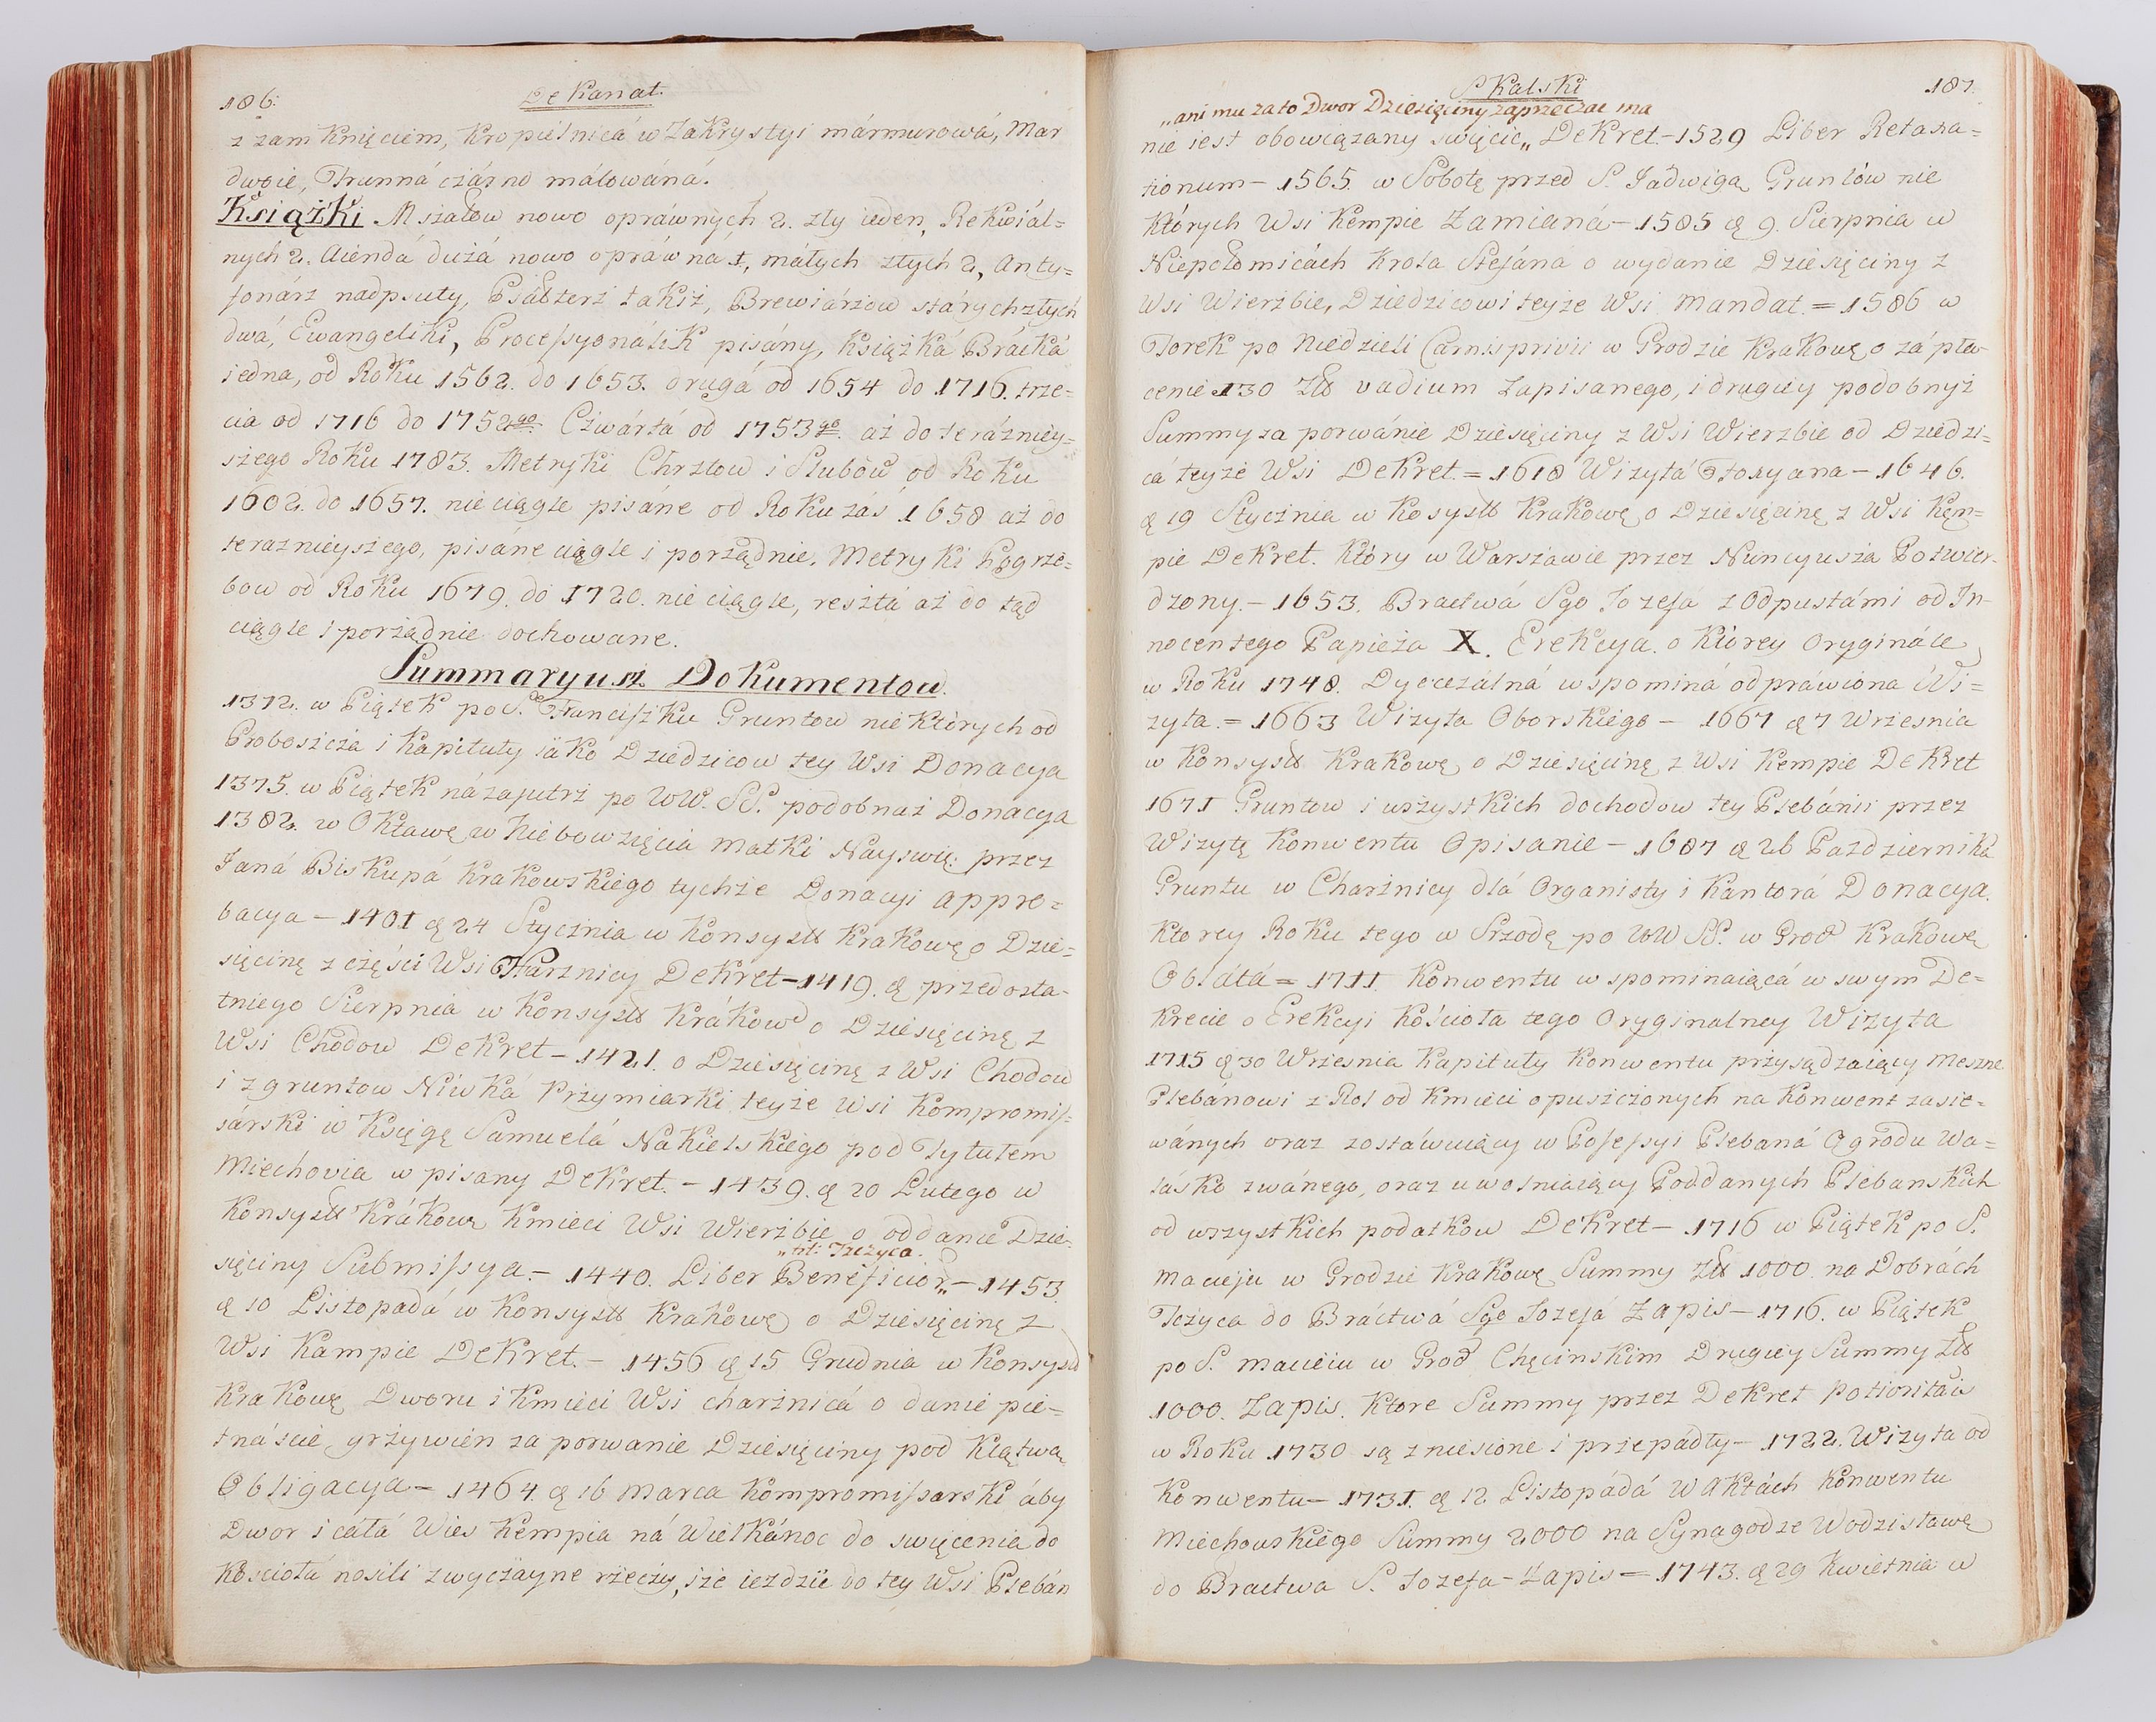 186.
DeKanat.
z zamKnięciem, Kropielnicá w ZaKrystyi mármurowá, Mar
dwoie, Trunná czárno málowáná.
Książki Mszałow nowo opráwnych 2. zły ieden, ReKwiál=
nych 2. Aiendá dużá nowo opráwná 1, máłych złych 2, Anty=
fonárz nadpsuty, Psałterz taKiż, Brewiárzow stárych złych
dwá, EwangeliKi, ProcessyonáliK pisány, KsiążKá BráckA
iedna, od RoKu 1562. do 1653. drugá od 1654 do 1716. trze=
cia od 1716 do 1752go. Czwártá od 1753go. aż do teráźniey=
szego RoKu 1783. MetryKi Chrztow i Slubow od RoKu
1602. do 1657. nie ciągle pisáne od RoKu záś 1658 aż do
teraznieyszego, pisáne ciągle i porządnie. MetryKi Pogrze=
bow od RoKu 1679. do 1720. nie ciągle, resztá aż do tąd
ciągle i porządnie dochowane.
Summaryusz DoKumentow.
1372. w PiąteK po S. FranciszKu Gruntow nieKtórych od
Proboszcza i Kapituły iáKo Dziedzicow tey Wsi Donacya
1375. w PiąteK názajutrz po WW. SS. podobnaż Donacya
1382. w OKtawę w Niebowzięcia MatKi Nayswię: przez
Janá BisKupá KraKowsKiego tychże Donacyi appro=
bacya — 1401 d 24 Stycznia w Konsystt KraKowę o Dzie=
sięcinę z części Wsi Harznicy DeKret — 1419. d przedosta=
tniego Sierpnia w Konsystt KráKow o Dziesięcinę z
Wsi Chodow DeKret — 1421. o Dziesięcinę z Wsi Chodow
i z gruntow NiwKá PrzymiarKi teyże Wsi Kompromis=
sárski w Księgę Samuelá NaKielsKiego pod Tytułem
Miechovia wpisany DeKret. — 1439. d 20 Lutego w
Konsystt KráKowę Kmieci Wsi Wierzbie o oddanie Dzie=
„tit: Jzeżyca.
sięciny Submissya. — 1440. Liber Beneficior„ — 1453.
d 10 Listopadá w Konsystt KraKowę o Dziesięcinę z
Wsi Kampie DeKret. — 1456 d 15 Grudnia w Konsystt
KraKowę Dworu i Kmieci Wsi charżnicá o danie pie=
tnáście grzywien za porwanie Dziesięciny pod Klątwą
Obligacya — 1464. d 16 Marca KompromissarsKi áby
Dwor i cátá Wieś Kempia ná WielKánoc do swięcenia do
Kościołá nosili zwyczayne rzeczy, iże ieździe do tey Wsi Plebán
SKalsKi
187.
„ani mu zato Dwor Dziesięciny zaprzeczac ma
nie iest obowiązany święcic„ DeKret. — 1529 Liber Retaxa=
tionum — 1565. w Sobotę przed S. Jadwigą Gruntów nie
Których Wsi Kempie Zamianá — 1585 d 9. Sierpnia w
Niepołomicách Krola Stefána o wydanie Dziesięciny z
Wsi Wierzbie, Dziedzicowi teyże Wsi Mandat. = 1586 w
WtoreK po Niedzieli Carnisprivii w Grodzie KraKowę o zápła=
cenie 130 Złł vadium Zapisanego, i drugiey podobnyż
Summy za porwánie Dziesięciny z Wsi Wierzbie od Dziedzi=
cá teyże Wsi DeKret. = 1618 Wizytá Floryana — 1646.
d 19 Stycznia w Kosystt KraKowę o Dziesięcinę z Wsi Kęm=
pie DeKret. Który w Warszawie przez Nuncyusza Potwier=
dzony. — 1653. Bractwá Sgo Jozefa z Odpustámi od In=
nocentego Papieża X. EreKcya. o Którey Orygínále
w RoKu 1748. Dyecezálná wspominá odprawiona Wi=
zyta. = 1663 Wizyta OborsKiego — 1667 d 7 Wrzesnia
w Konsystt KraKowę o Dziesięcinę z Wsi Kempie DeKret
1671 Gruntow i wszystKich dochodow tey Plebánii przez
Wizytę Konwentu Opisanie — 1687 d 26 PazdzierniKá
Gruntu w Charżnicy dlá Organisty i Kantorá Donacya.
Ktorey RoKu tego w Srzodę po WW SS. w Grod KraKowę
Oblátá = 1711 Konwentu wspominaiącá w swym De=
Krecie o EreKcyi Kościoła tego Oryginalney Wizyta
1715 d 30 Wrzesnia Kapituły Konwentu przysądzaiący Meszne
Plebánowi z Rol od Kmieci opuszczonych na Konwent zasie=
wánych oraz zostáwuiący w Possessyi Plebaná Ogrodu Wa=
lásko zwánego, oraz uwolniaiący Poddanych PlebansKich
od wszystKich podatKow DeKret — 1716 w PiąteK po S.
Macieju w Grodzie KraKowę Summy Złł 1000. na Dobrách
Jeżyca do Bráctwá Sgo Jozefá Zapis — 1716. w PiąteK
po S. Macieiu w Grod Chęcinskim Drugiey Summy Złł
1000. Zapis. Ktore Summy przez DeKret potioritátis
w RoKu 1730 są zniesione i przepádły — 1722. Wizyta od
Konwentu — 1731. d 12 Listopádá w AKtách Konwentu
MiechowsKiego Summy 2000 na Synagodze Wodzisławę
do Bractwa S. Jozefa — Zapis = 1743. d 29 Kwietnia w